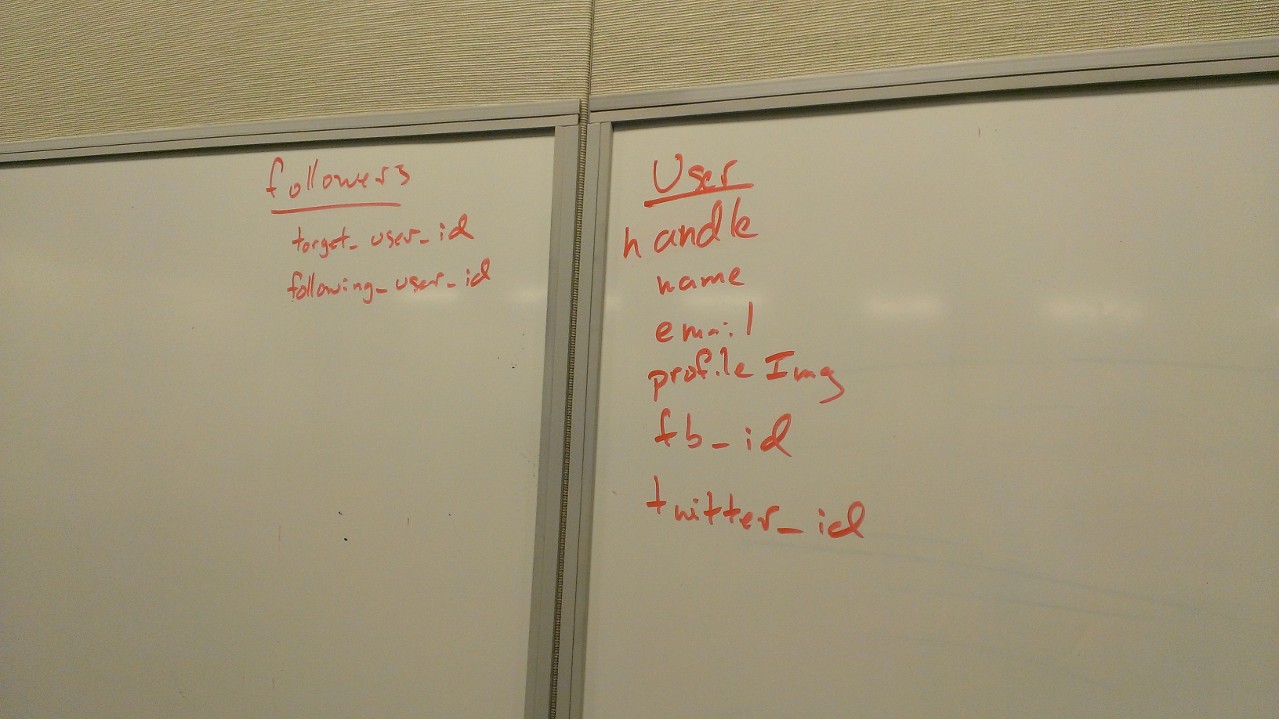 followers
target_user_id
following_user_id
User
handle
name
email
profileImg
fb_id
twitter_id